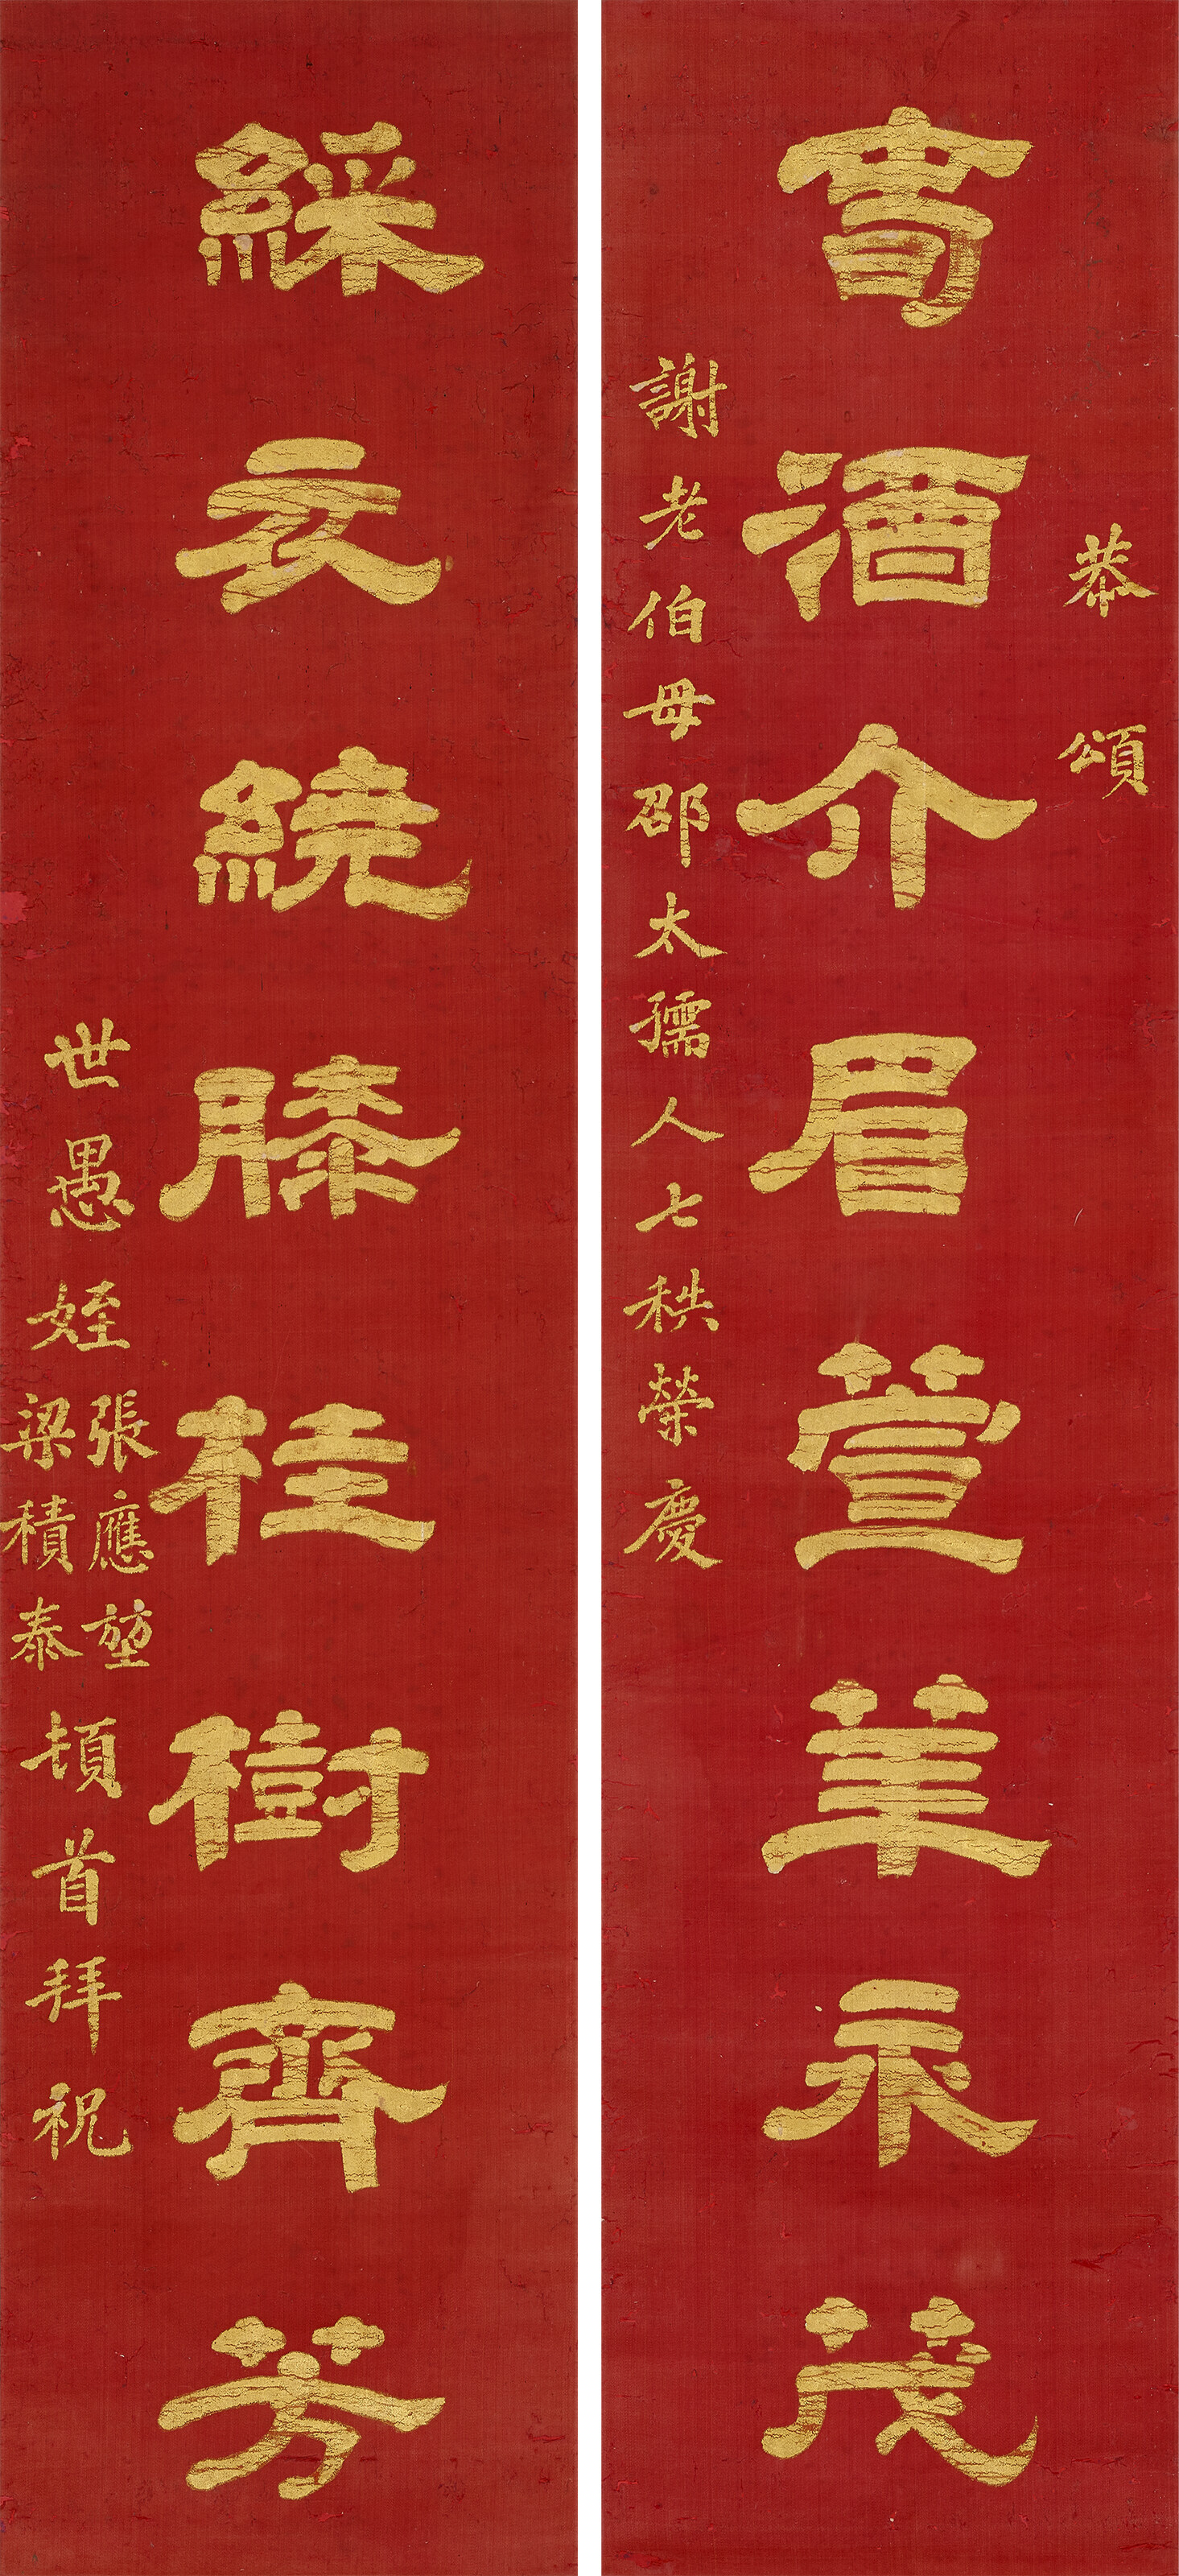 恭頌
旾酒介眉萱華永茂
謝老伯母邵太孺人七秩榮慶
綵衣繞膝桂樹齊芳
世愚姪
張應堃
梁積泰
頓首拜祝